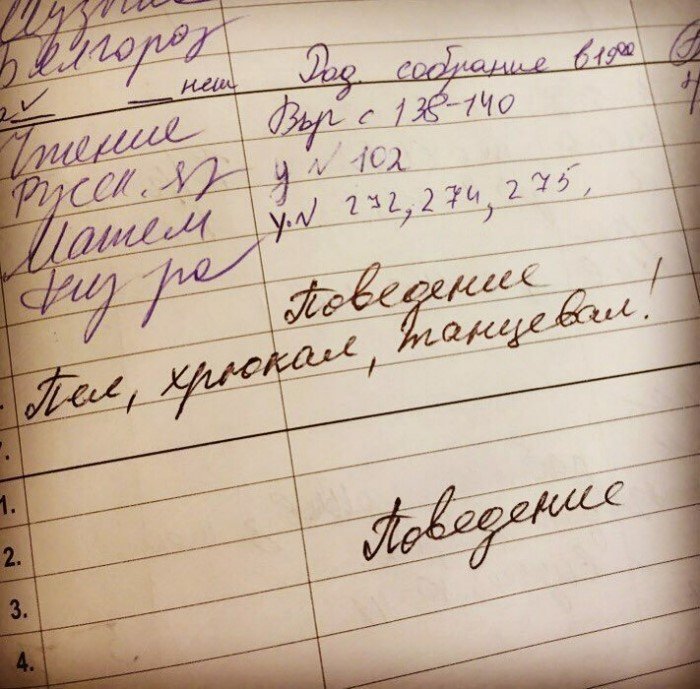 Белгород
нет Род собрание в 19⁰⁰
Чтение Выр с 138-140
Русск. яз у № 102
Матем у.№ 272, 274, 275.
Физ ра
Поведение
Пел, хрюкал, танцевал!
Поведение
1.
2.
3.
4.